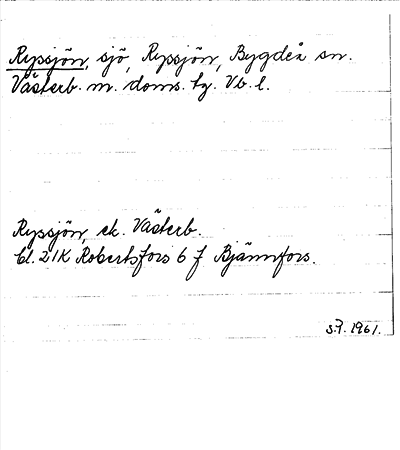 Rypsjön, sjö, Rypsjön, Bygdeå sn.
Västerb. m. doms. tg. Vb. l.
Rypsjön, ek. Västerb.
bl. 21K Robertsfors 6 f Bjännfors.
S.F. 1961.